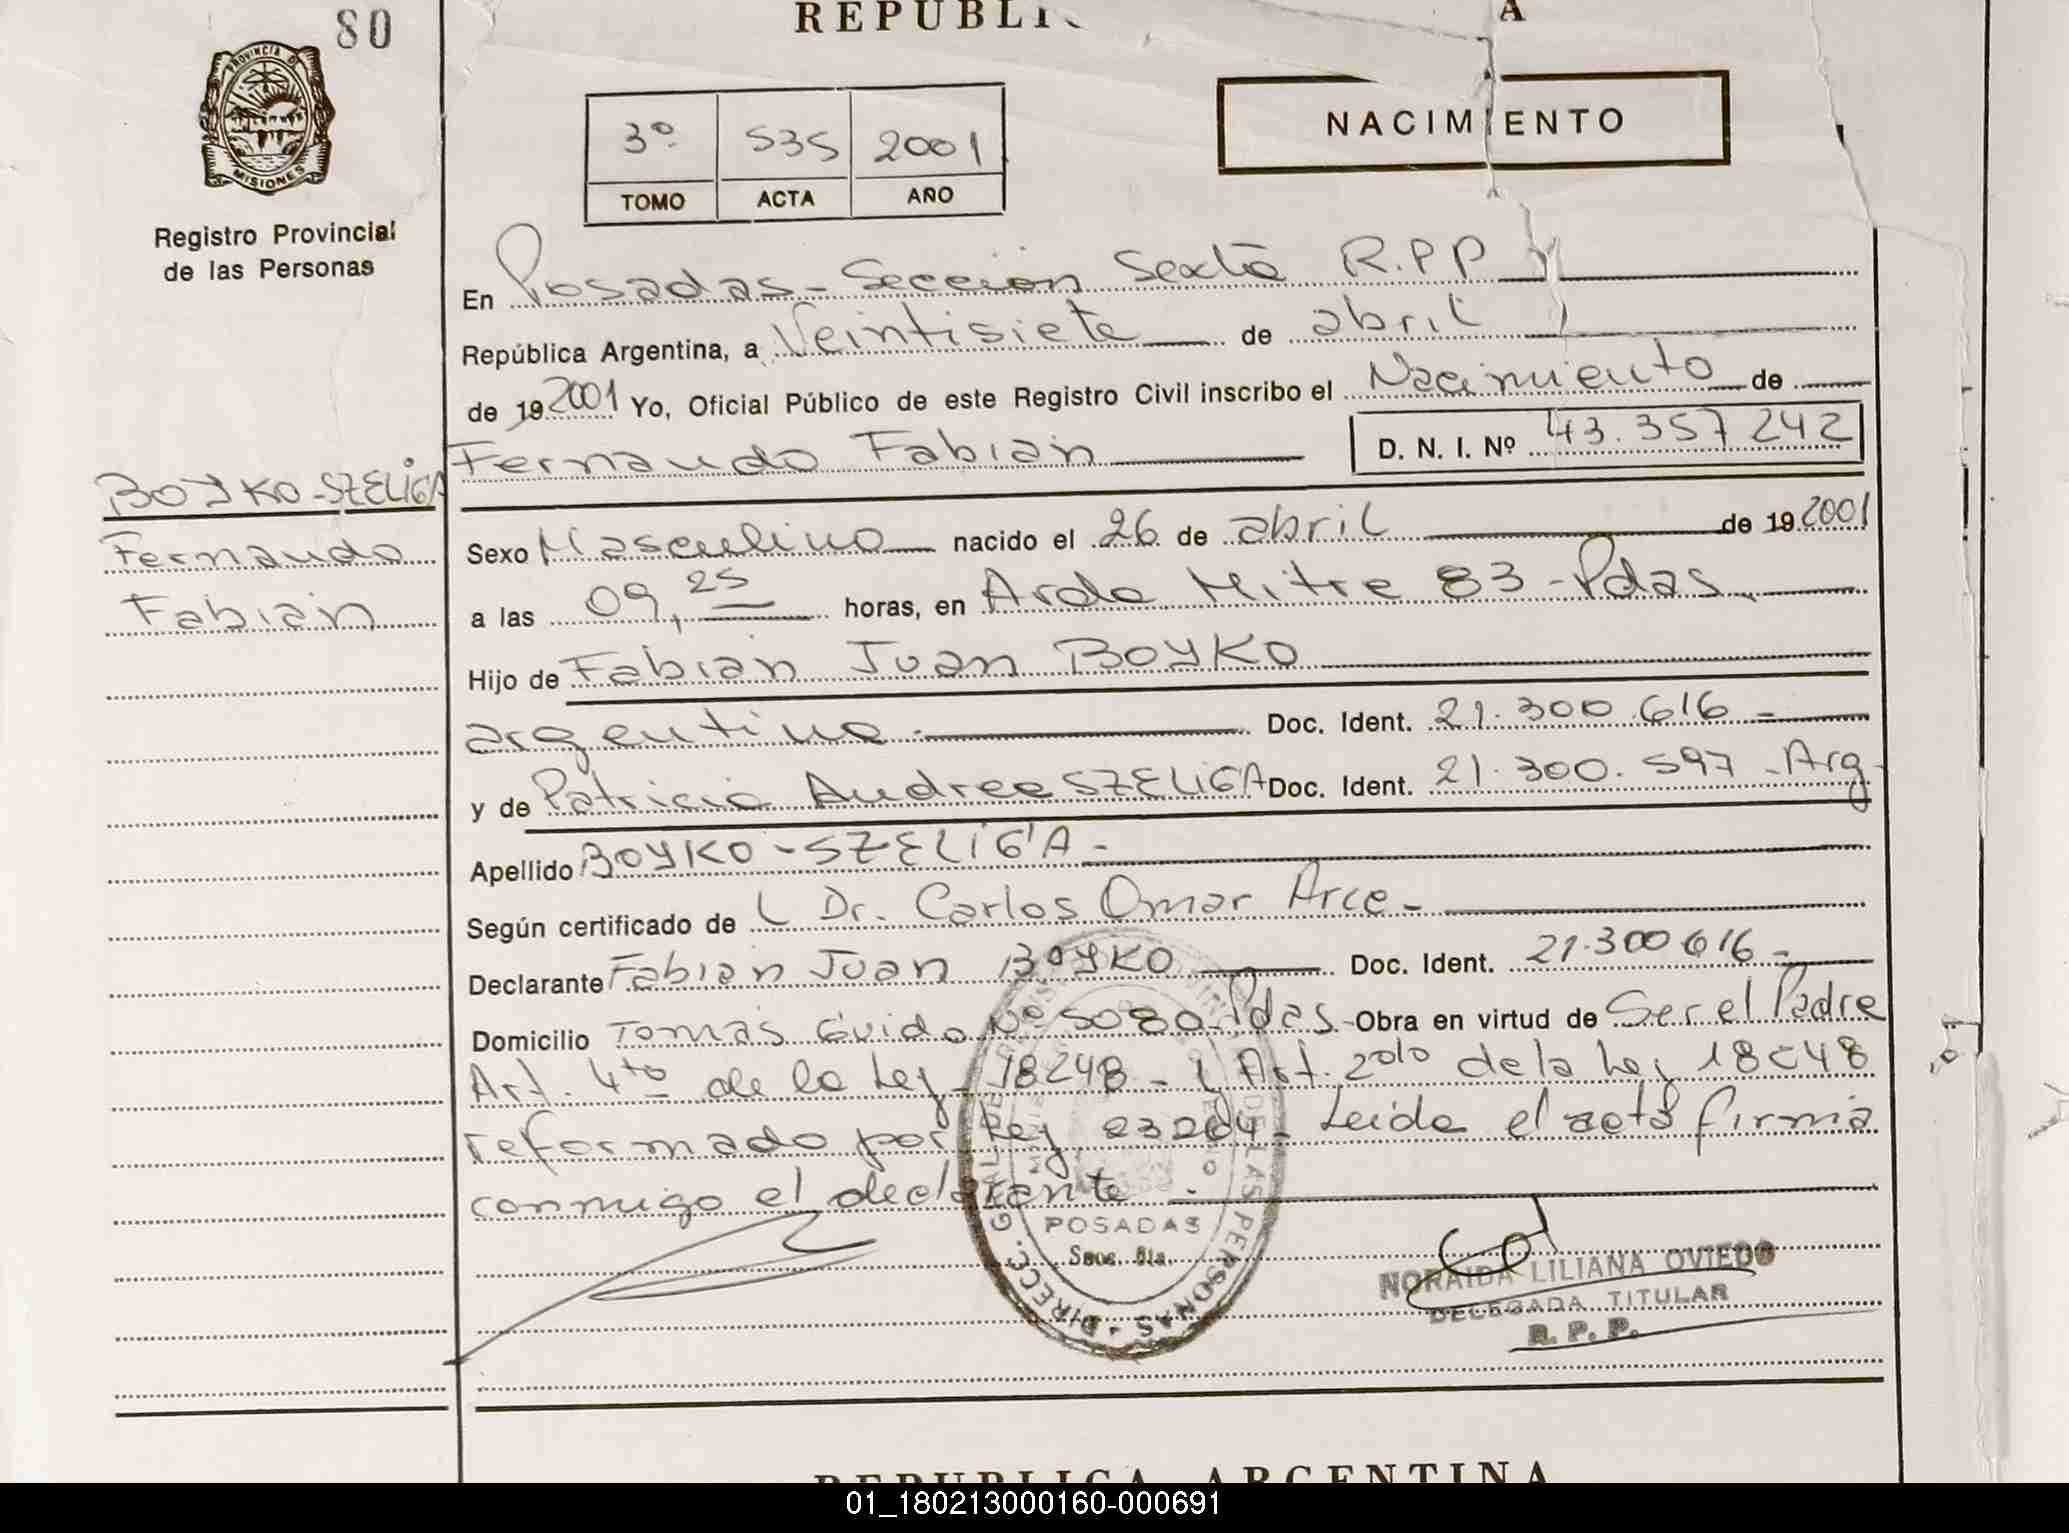 80
REPUBLI A
PROVINCIA DE
MISIONES
Registro Provincial
de las Personas
3º 535 2001
TOMO ACTA AÑO
NACIMIENTO
En Posadas - Sección Sexta R.P.P
República Argentina, a Veintisiete de abril
de 19 2001 Yo, Oficial Público de este Registro Civil inscribo el Nacimiento de
Fernando Fabián D. N. I. Nº 43.357.242
BOYKO-SZELIGA
Fernando
Fabián
Sexo Masculino nacido el 26 de abril de 19 2001
a las 09,25 horas, en Avda Mitre 83 - Pdas
Hijo de Fabián Juan BOYKO
argentino. Doc. Ident. 21.300.616 -
y de Patricia Andrea SZELIGA Doc. Ident. 21.300.597 - Arg
Apellido BOYKO - SZELIGA -
Según certificado de L Dr. Carlos Omar Arce -
Declarante Fabián Juan BOYKO Doc. Ident. 21.300616 -
Domicilio Tomás Guido Nº 5080 Pdas - Obra en virtud de Ser el Padre
Art. 4to de la Ley 18248 - Art. 2do de la Ley 18248
reformado por Ley 23264 - Leída el acta firma
conmigo el declarante.
DIRECC. GRAL. DE DE LAS PERSONAS
POSADAS
Secc. 6ta.
NORAIDA LILIANA OVIEDO
DELEGADA TITULAR
R. P. P.
REPUBLICA ARGENTINA
01_180213000160-000691